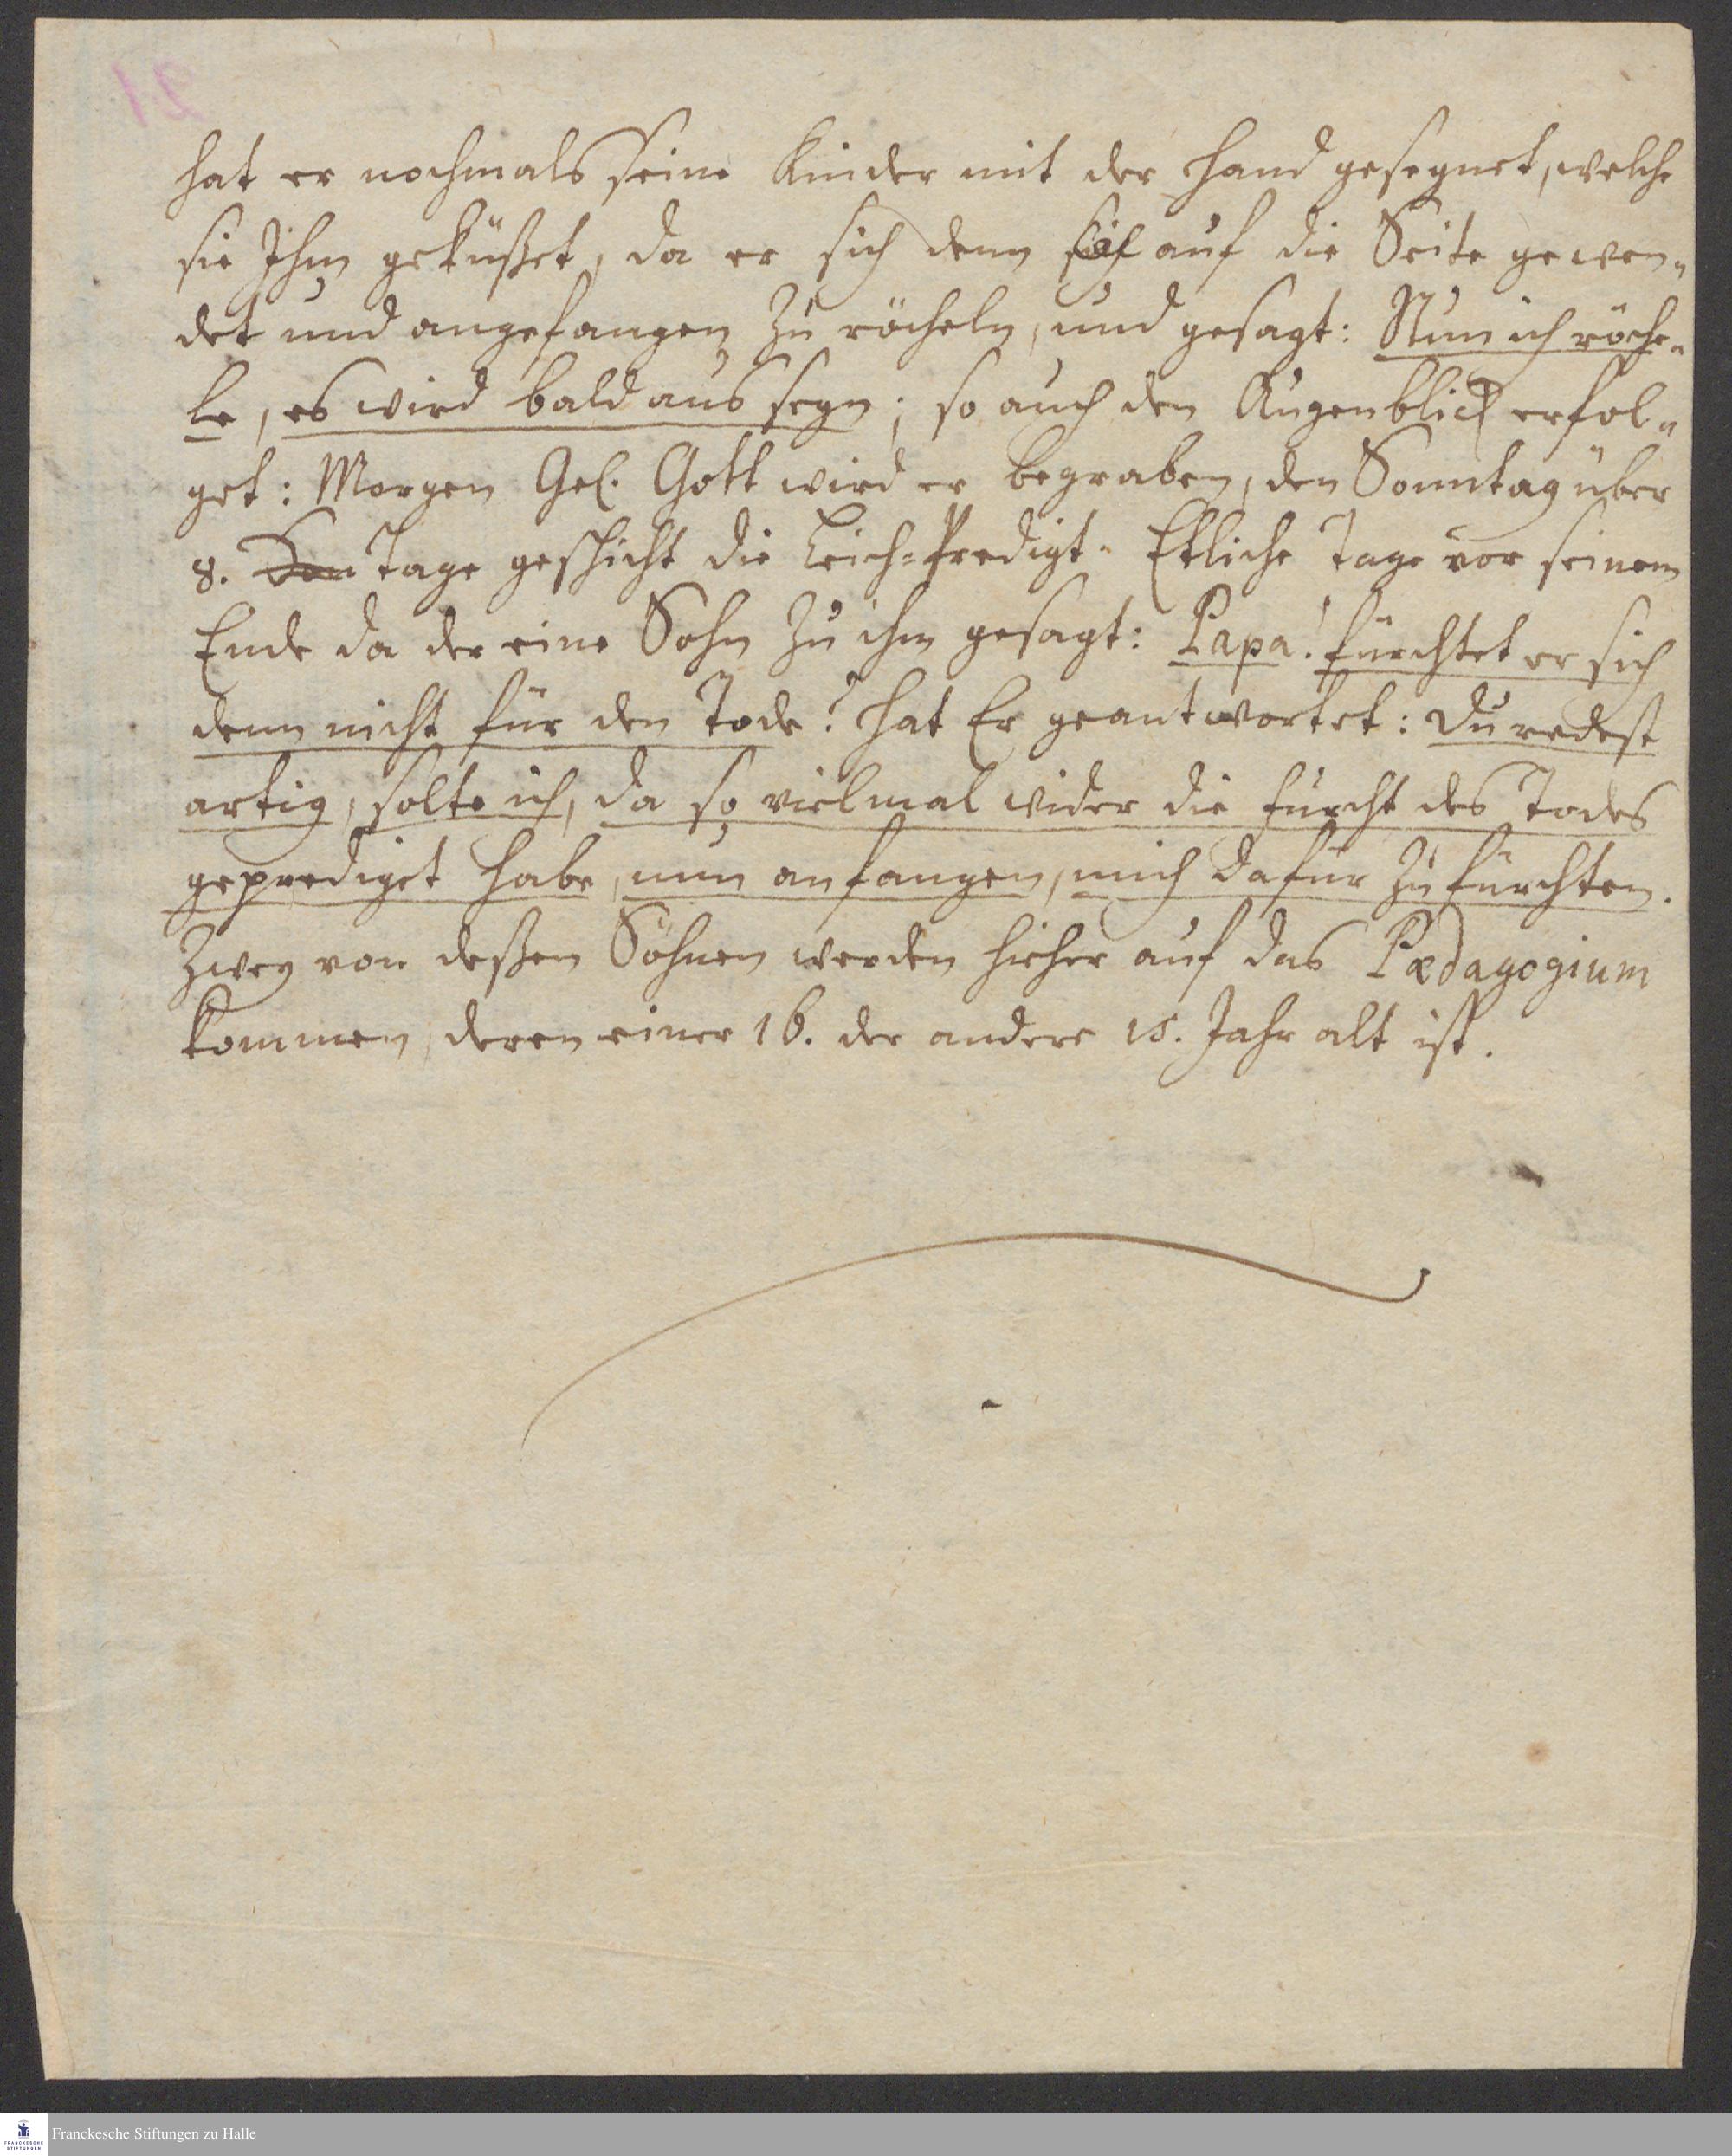 hat er nochmals seine Kinder mit der Hand gesegnet, welche
sie Ihm geküßet, da er sich denn auf die Seite gewen-
det und angefangen zu röcheln, und gesagt: Nun ich röche-
le, es wird bald aus seyn; so auch den Augenblick erfol-
get: Morgen Gel. Gott wird er begraben, den Sonntag über
8. Tage geschicht die Leich-Predigt. Etliche Tage vor seinem
Ende da der eine Sohn zu ihm gesagt: Papa! fürchtet er sich
denn nicht für den Tode? hat Er geantwortet: Du redest
artig, solte ich, da so vielmal wider die Furcht des Todes
geprediget habe, nun anfangen, mich dafür zu fürchten.
Zwey von deßen Söhnen werden hieher auf das Pædagogium
kommen, deren einer 16. der andere 15. Jahr alt ist.
Franckesche Stiftungen zu Halle